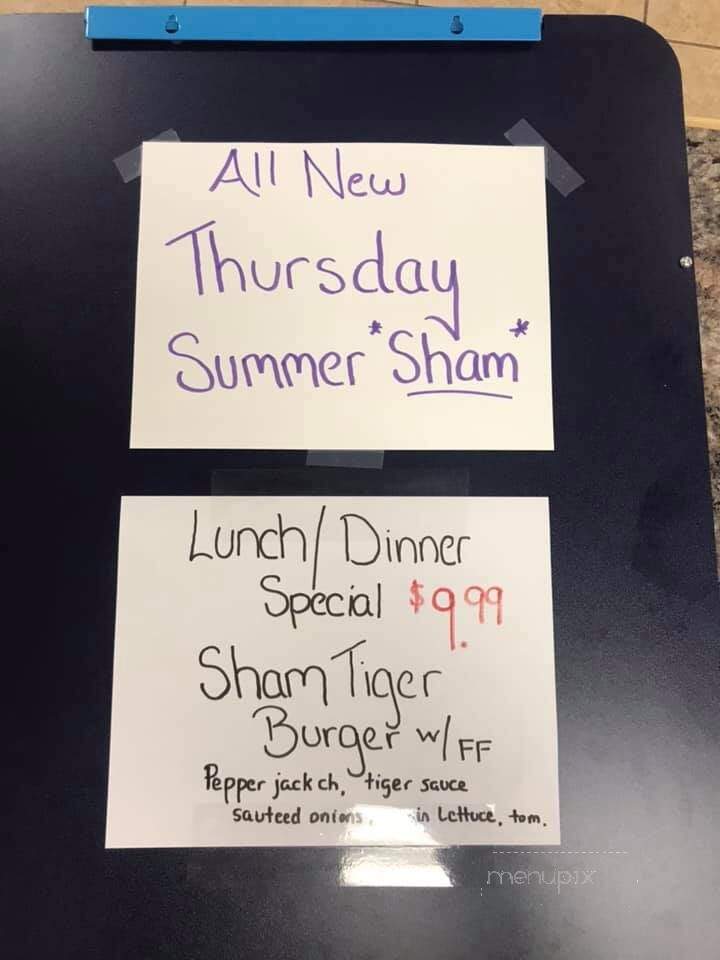 All New
Thursday
Summer *Sham*
Lunch/Dinner
Special $9.99
Sham Tiger
Burger w/ FF
Pepper jack ch, tiger sauce
Sauteed onions, in Lettuce, tom.
menupix